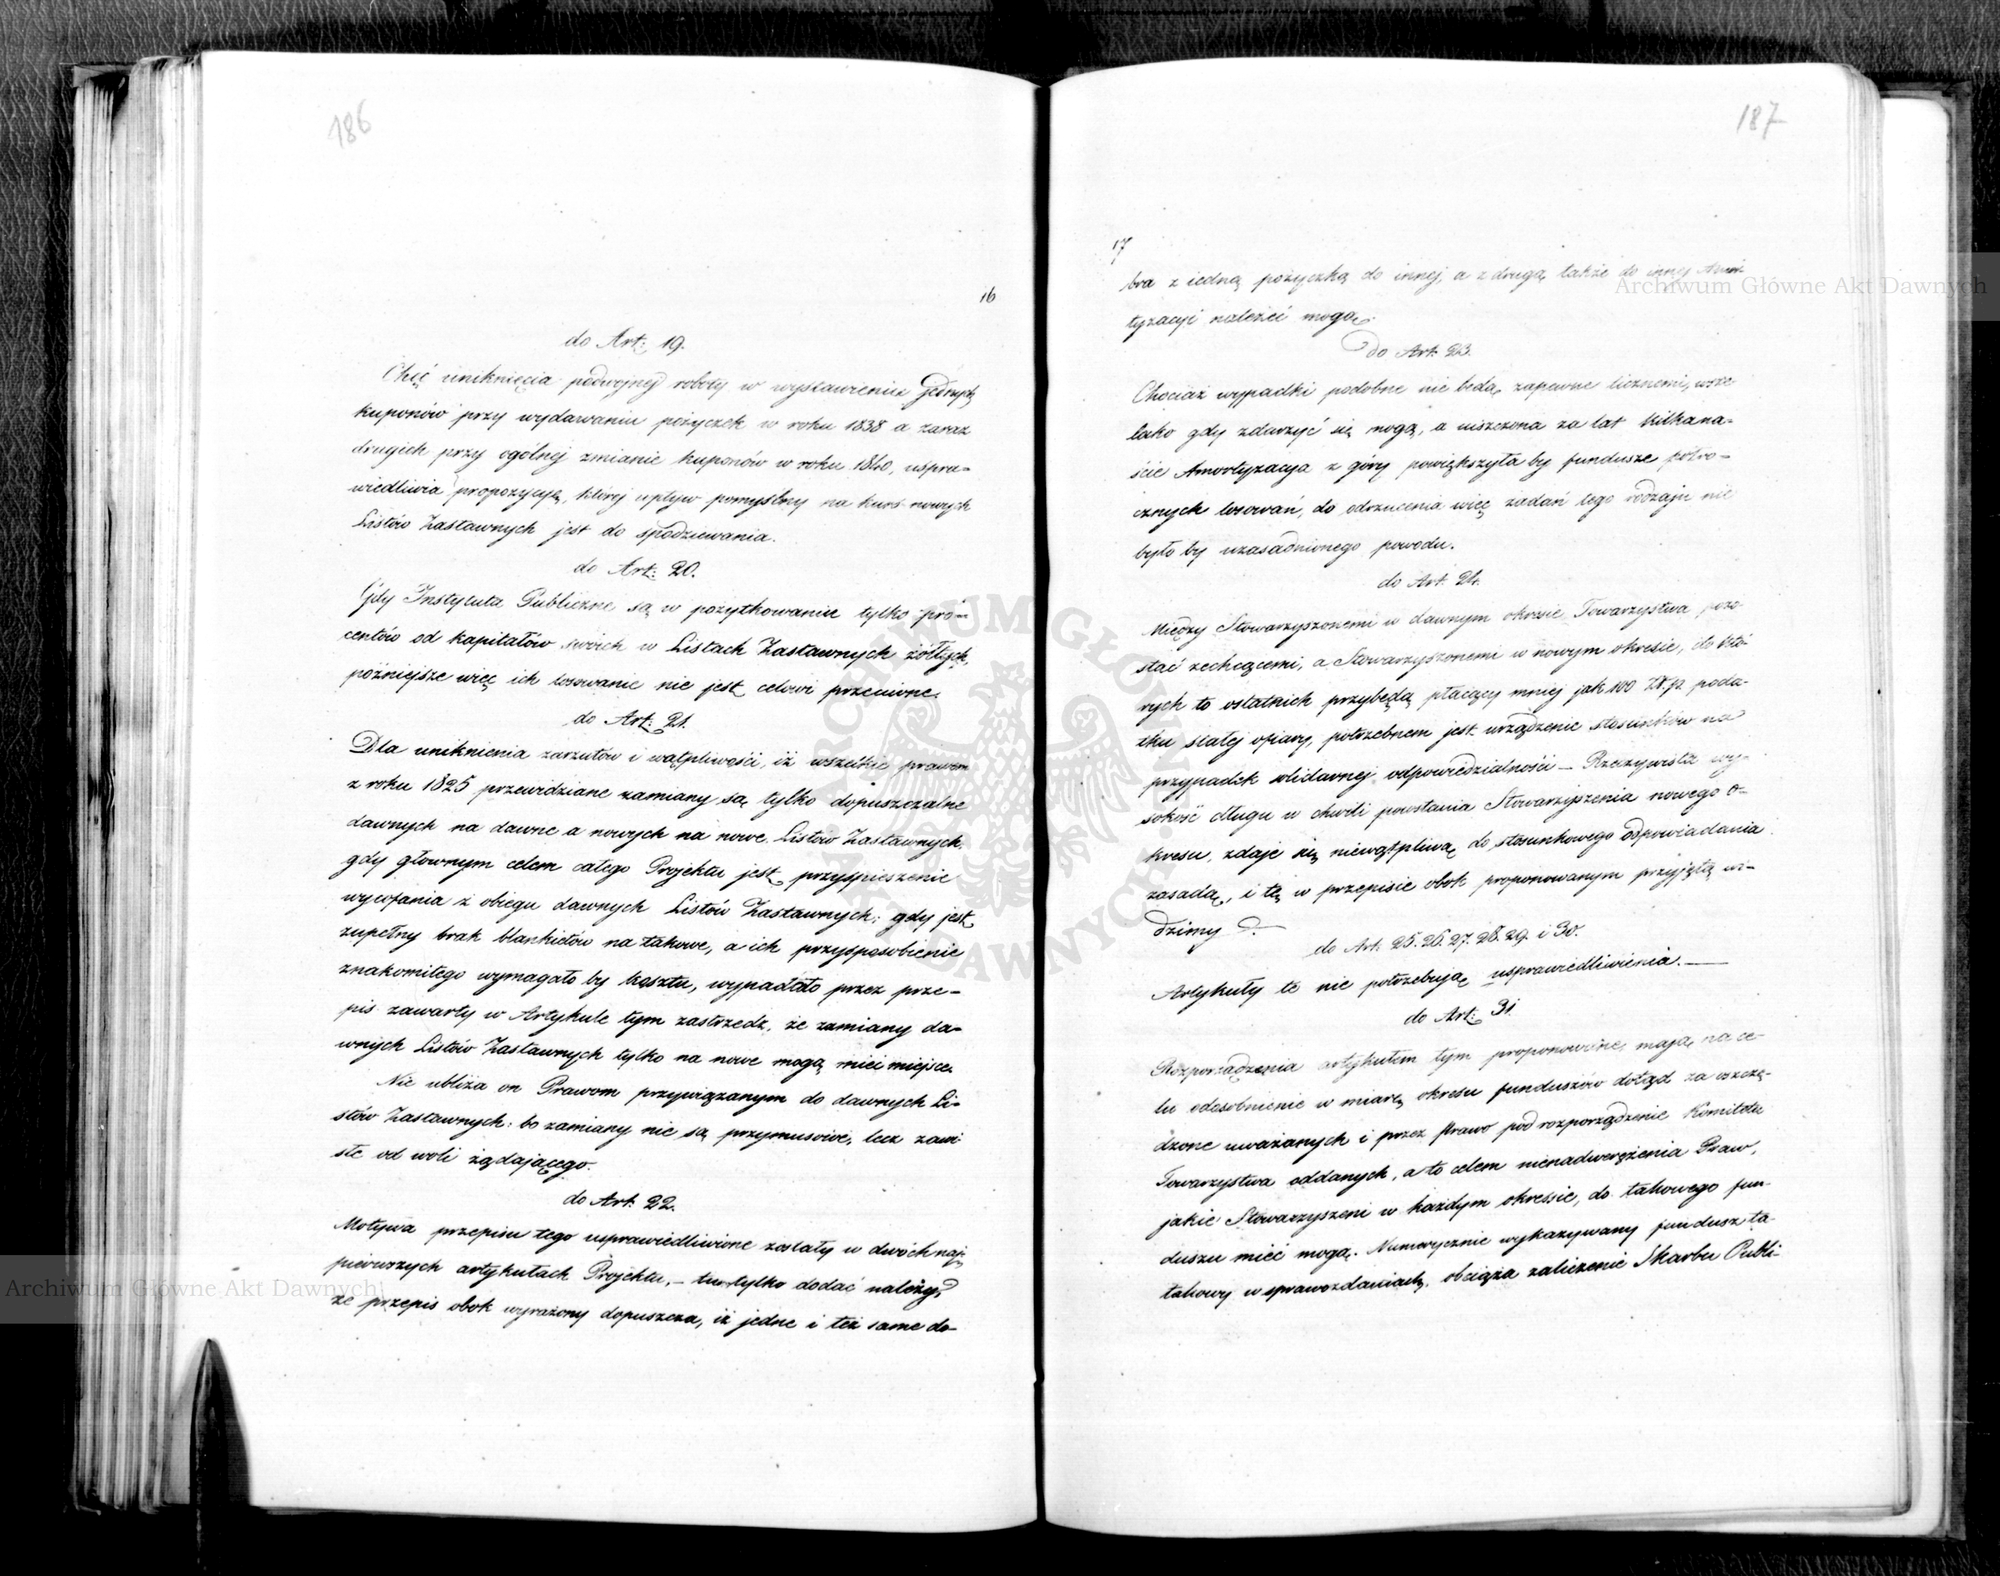 186
16
do Art: 19.
Chęć uniknięcia podwójnej roboty w wystawieniu jednych
kuponów przy wydawaniu pożyczek w roku 1838 a zaraz
drugich przy ogólnej zmianie kuponów w roku 1840, uspra-
wiedliwia propozycyą, której wpływ pomyślny na kurs nowych
Listów Zastawnych jest do spodziewania.
do Art: 20.
Gdy Instytuta Publiczne są w pożytkowaniu tylko pro-
centów od kapitałów swoich w Listach Zastawnych żółtych,
późniejsze więc ich losowanie nie jest celowi przeciwne.
do Art: 21.
Dla uniknienia zarzutów i wątpliwości, iż wszelkie prawem
z roku 1825 przewidziane zamiany są tylko dopuszczalne
dawnych na dawne a nowych na nowe Listów Zastawnych,
gdy głównym celem całego Projektu jest przyśpieszenie
wycofania z obiegu dawnych Listów Zastawnych; gdy jest
zupełny brak blankietów na takowe, a ich przysposobienie
znakomitego wymagało by kosztu, wypadało przez prze-
pis zawarty w Artykule tym zastrzedz, że zamiany da-
wnych Listów Zastawnych tylko na nowe mogą mieć miejsce.
Nie ubliża on Prawom przywiązanym do dawnych Li-
stów Zastawnych: bo zamiany nie są przymusowe, lecz zawi-
słe od woli żądającego.
do Art: 22.
Motywa przepisu tego usprawiedliwione zostały w dwóch naj-
pierwszych artykułach Projektu, – tu tylko dodać należy,
że przepis obok wyrażony dopuszcza, iż jedne i też same do-
187
17
bra z jedną pożyczką do innej, a z drugą także do innej Amor-
tyzacyi należeć mogą.
do Art: 23.
Chociaż wypadki podobne nie będą zapewne licznemi, wsze-
lako gdy zdarzyć się mogą, a uiszczona za lat kilkana-
ście Amortyzacya z góry powiększyła by fundusze półro-
cznych losowań, do odrzucenia więc żądań tego rodzaju nie
było by uzasadnionego powodu.
do Art: 24.
Między Stowarzyszonemi w dawnym okresie Towarzystwa pozo-
stać zechcącemi, a Stowarzyszonemi w nowym okresie, do któ-
rych to ostatnich przybędą płacący mniej jak 100 Złp. poda-
tku stałej ofiary, potrzebnem jest urządzenie stosunków na
przypadek solidarnej odpowiedzialności – Rzeczywista wy-
sokość długu w chwili powstania Stowarzyszenia nowego o-
kresu, zdaje się niewątpliwą do stosunkowego odpowiadania
zasadą, i tę w przepisie obok proponowanym przyjętą wi-
dzimy.
do Art. 25. 26. 27. 28. 29. i 30.
Artykuły te nie potrzebują usprawiedliwienia. —
do Art: 31.
Rozporządzenia artykułem tym proponowane, mają na ce-
lu odosobnienie w miarę okresu funduszów dotąd za oszczę-
dzone uważanych i przez Prawo pod rozporządzenie Komitetu
Towarzystwa oddanych, a to celem nienadwerężenia Praw,
jakie Stowarzyszeni w każdym okresie, do takowego fun-
duszu mieć mogą. Numerycznie wykazywany fundusz ta-
kowy w sprawozdaniach, obciąża zaliczenie Skarbu Publi-
Archiwum Główne Akt Dawnych
Archiwum Główne Akt Dawnych
ARCHIWUM GŁÓWNE AKT DAWNYCH